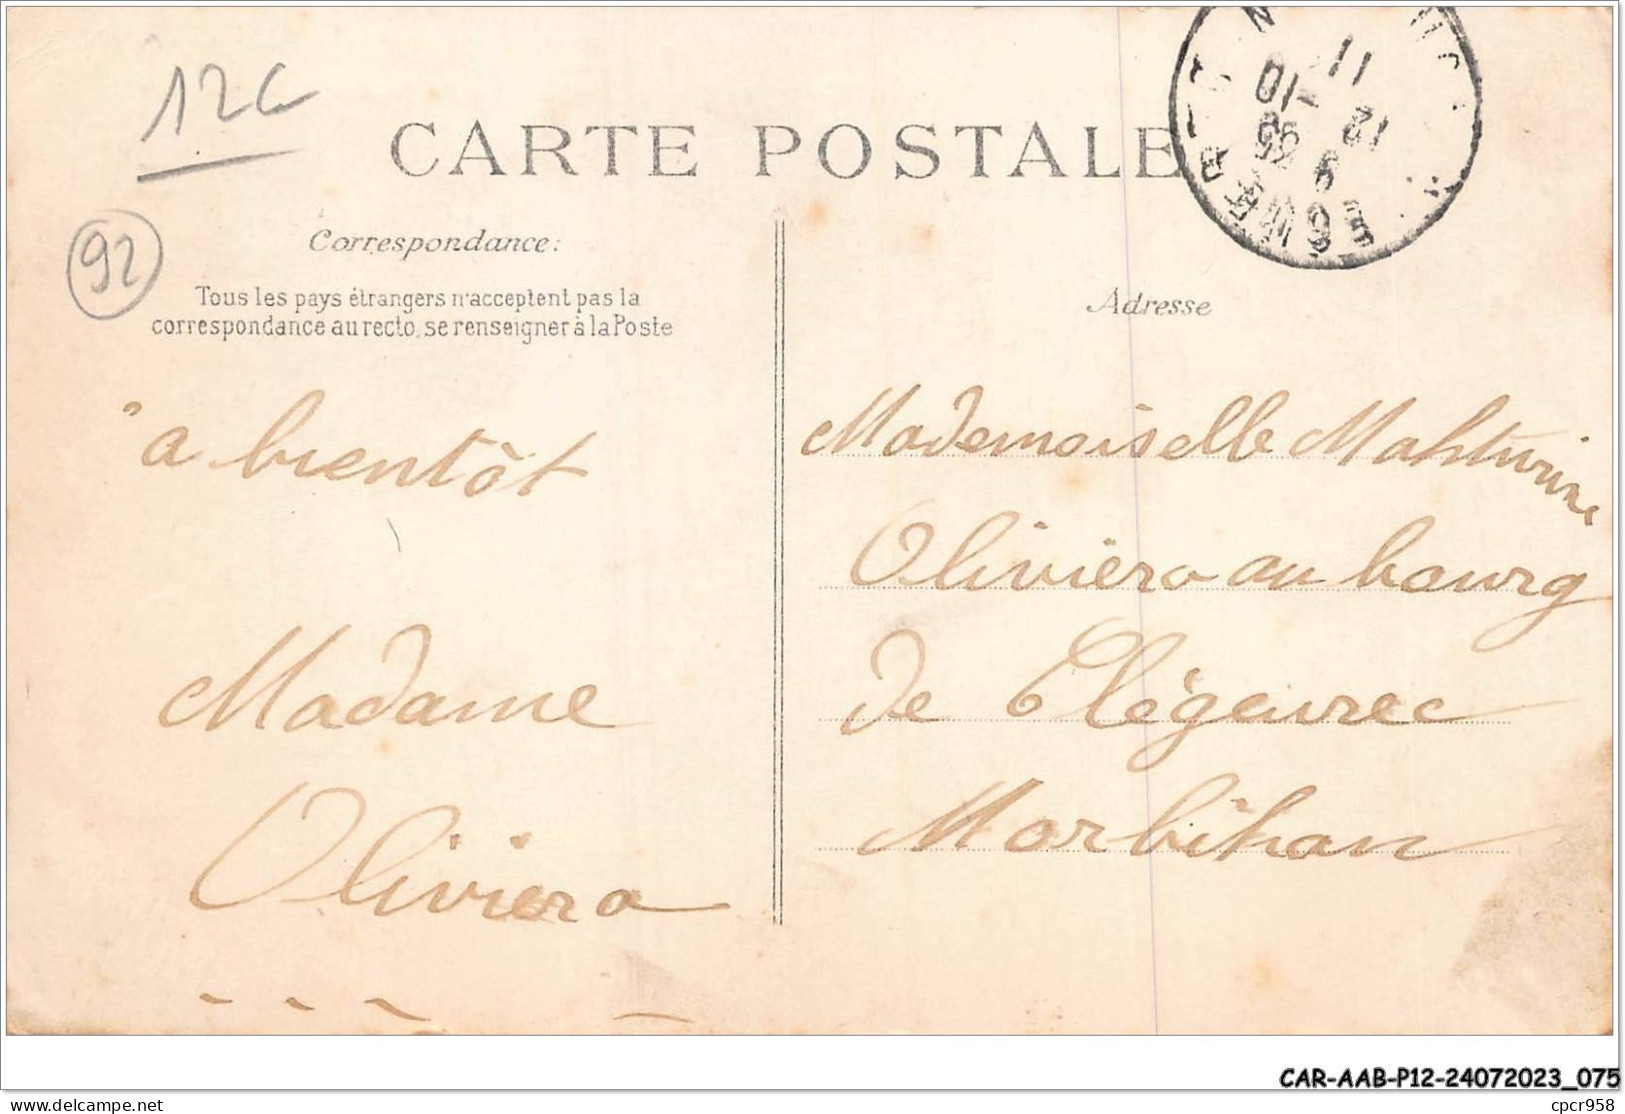 12€
CARTE POSTALE
92
Correspondance:
Tous les pays étrangers n'acceptent pas la
correspondance au recto, se renseigner à la Poste
Adresse
a bientôt
Madame
Oliviero
Mademoiselle Mahturine
Oliviero au bourg
de Clégeurec
Morbihan
11
12 -10
CAR-AAB-P12-24072023_075
delcampe.net
cpcr958